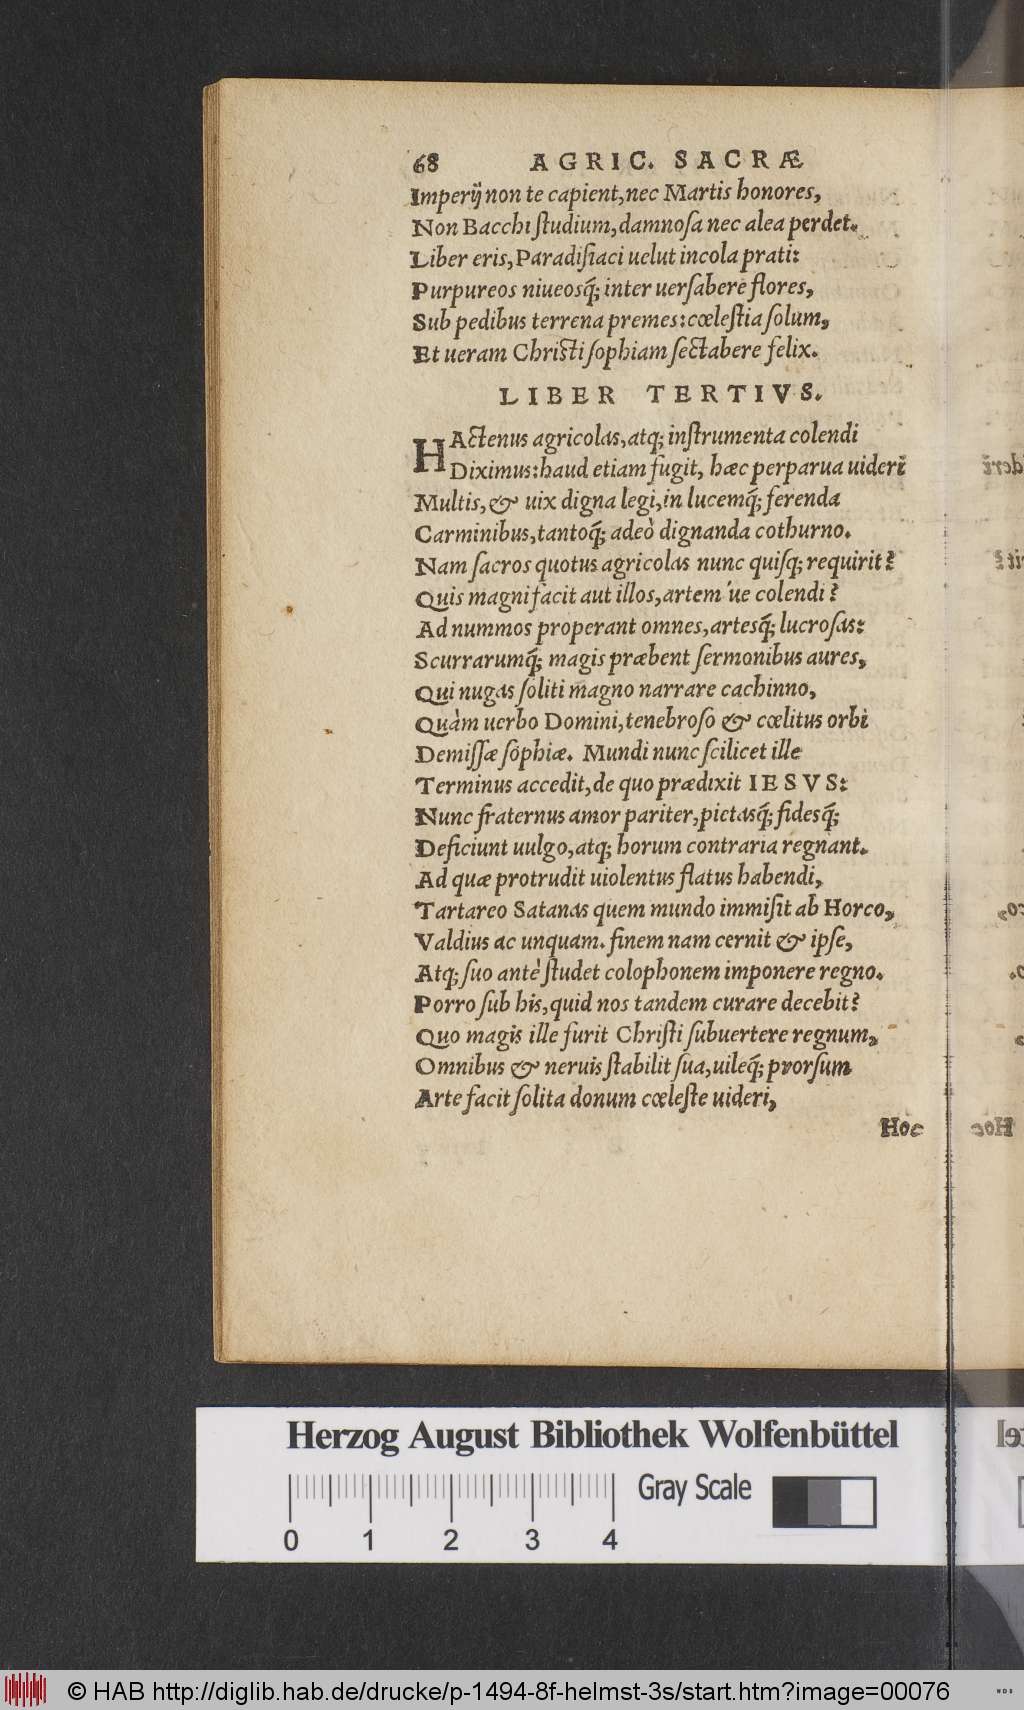 68 AGRIC. SACRÆ
Imperij non te capient, nec Martis honores,
Non Bacchi ſtudium, damnoſa nec alea perdet.
Liber eris, Paradiſiaci uelut incola prati:
Purpureos niueosq́; inter uerſabere flores,
Sub pedibus terrena premes: cœleſtia ſolum,
Et ueram Chriſti ſophiam ſectabere felix.
LIBER TERTIVS.
HActenus agricolas, atq; inſtrumenta colendi
Diximus: haud etiam fugit, hæc perparua uiderĩ
Multis, & uix digna legi, in lucemq́; ferenda
Carminibus, tantoq́; adeò dignanda cothurno.
Nam ſacros quotus agricolas nunc quiſq; requirit?
Quis magni facit aut illos, artem 'ue colendi?
Ad nummos properant omnes, artesq́; lucroſas:
Scurrarumq́; magis præbent ſermonibus aures,
Qui nugas ſoliti magno narrare cachinno,
Quàm uerbo Domini, tenebroſo & cœlitus orbi
Demiſſæ ſophiæ. Mundi nunc ſcilicet ille
Terminus accedit, de quo prædixit IESVS:
Nunc fraternus amor pariter, pietasq́; fidesq́;
Deficiunt uulgo, atq; horum contraria regnant.
Ad quæ protrudit uiolentus flatus habendi,
Tartareo Satanas quem mundo immiſit ab Horco,
Valdius ac unquam. finem nam cernit & ipſe,
Atq; ſuo antè ſtudet colophonem imponere regno.
Porro ſub his, quid nos tandem curare decebit?
Quo magis ille furit Chriſti ſubuertere regnum,
Omnibus & neruis ſtabilit ſua, uileq́; prorſum
Arte facit ſolita donum cœleſte uideri,
Hoc
Herzog August Bibliothek Wolfenbüttel
Gray Scale
0 1 2 3 4
© HAB http://diglib.hab.de/drucke/p-1494-8f-helmst-3s/start.htm?image=00076